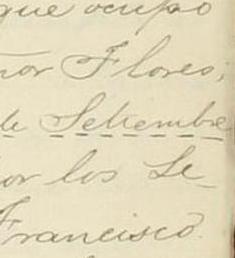 que ocupo
ñor Flores;
de Setiembre
or los Se_
Francisco